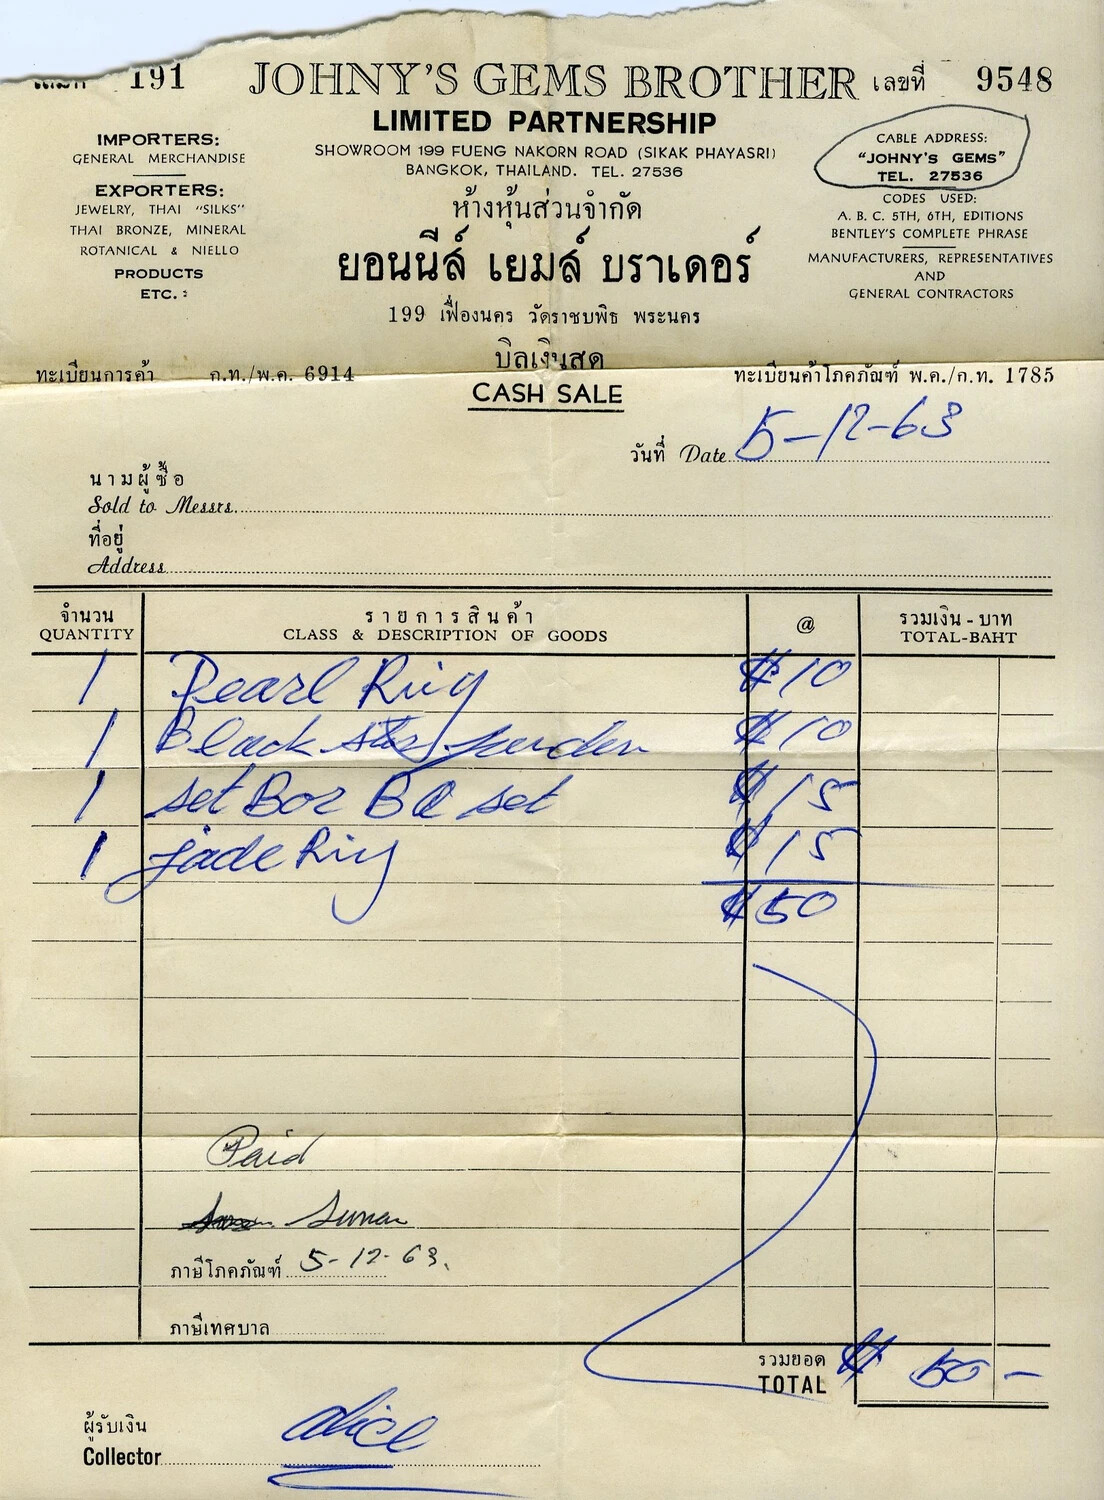 191 JOHNY'S GEMS BROTHER เลขที่ 9548
LIMITED PARTNERSHIP
SHOWROOM 199 FUENG NAKORN ROAD (SIKAK PHAYASRI)
BANGKOK, THAILAND. TEL. 27536
IMPORTERS:
GENERAL MERCHANDISE
EXPORTERS:
JEWELRY, THAI "SILKS"
THAI BRONZE, MINERAL
ROTANICAL & NIELLO
PRODUCTS
ETC. :
CABLE ADDRESS:
"JOHNY'S GEMS"
TEL. 27536
CODES USED:
A. B. C. 5TH, 6TH, EDITIONS
BENTLEY'S COMPLETE PHRASE
MANUFACTURERS, REPRESENTATIVES
AND
GENERAL CONTRACTORS
ห้างหุ้นส่วนจำกัด
ยอนนีส์ เยมส์ บราเดอร์
199 เฟื่องนคร วัดราชบพิธ พระนคร
บิลเงินสด
ทะเบียนการค้า ก.ท./พ.ค. 6914 ทะเบียนค้าโภคภัณฑ์ พ.ค./ก.ท. 1785
CASH SALE
วันที่ Date 5-12-63
นามผู้ซื้อ
Sold to Messrs.
ที่อยู่
Address
จำนวน รายการสินค้า รวมเงิน - บาท
QUANTITY CLASS & DESCRIPTION OF GOODS @ TOTAL-BAHT
1 Pearl Ring $10
1 Black star $10
1 set Box BQ set $15
1 jade Ring $15
$50
Paid
5-12-63.
ภาษีโภคภัณฑ์
ภาษีเทศบาล
รวมยอด
TOTAL $ 50 -
ผู้รับเงิน
Collector alice